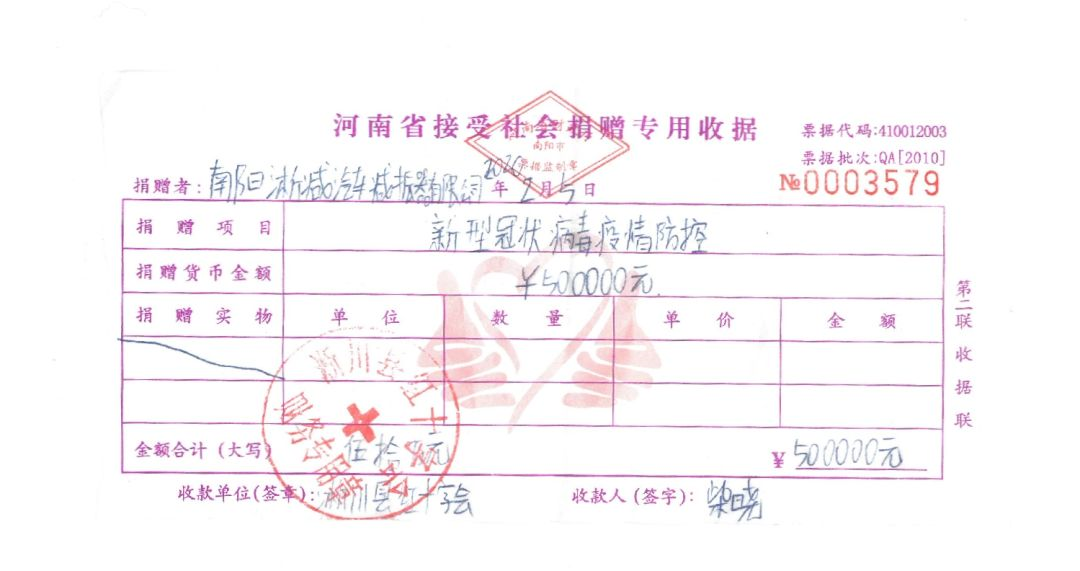 河南省接受社会捐赠专用收据
票据代码:410012003
南阳市
票据监制章
票据批次:QA[2010]
№0003579
捐赠者:南阳日淅减汽车减振器有限公司 2020年2月5日
捐赠项目 新型冠状病毒疫情防控
捐赠货币金额 ¥500000元.
捐赠实物 单位 数量 单价 金额
金额合计(大写) 伍拾万元 ¥500000元
第二联 收据联
淅川县红十字会
财务专用章
收款单位(签章):淅川县红十字会 收款人(签字):柴晓